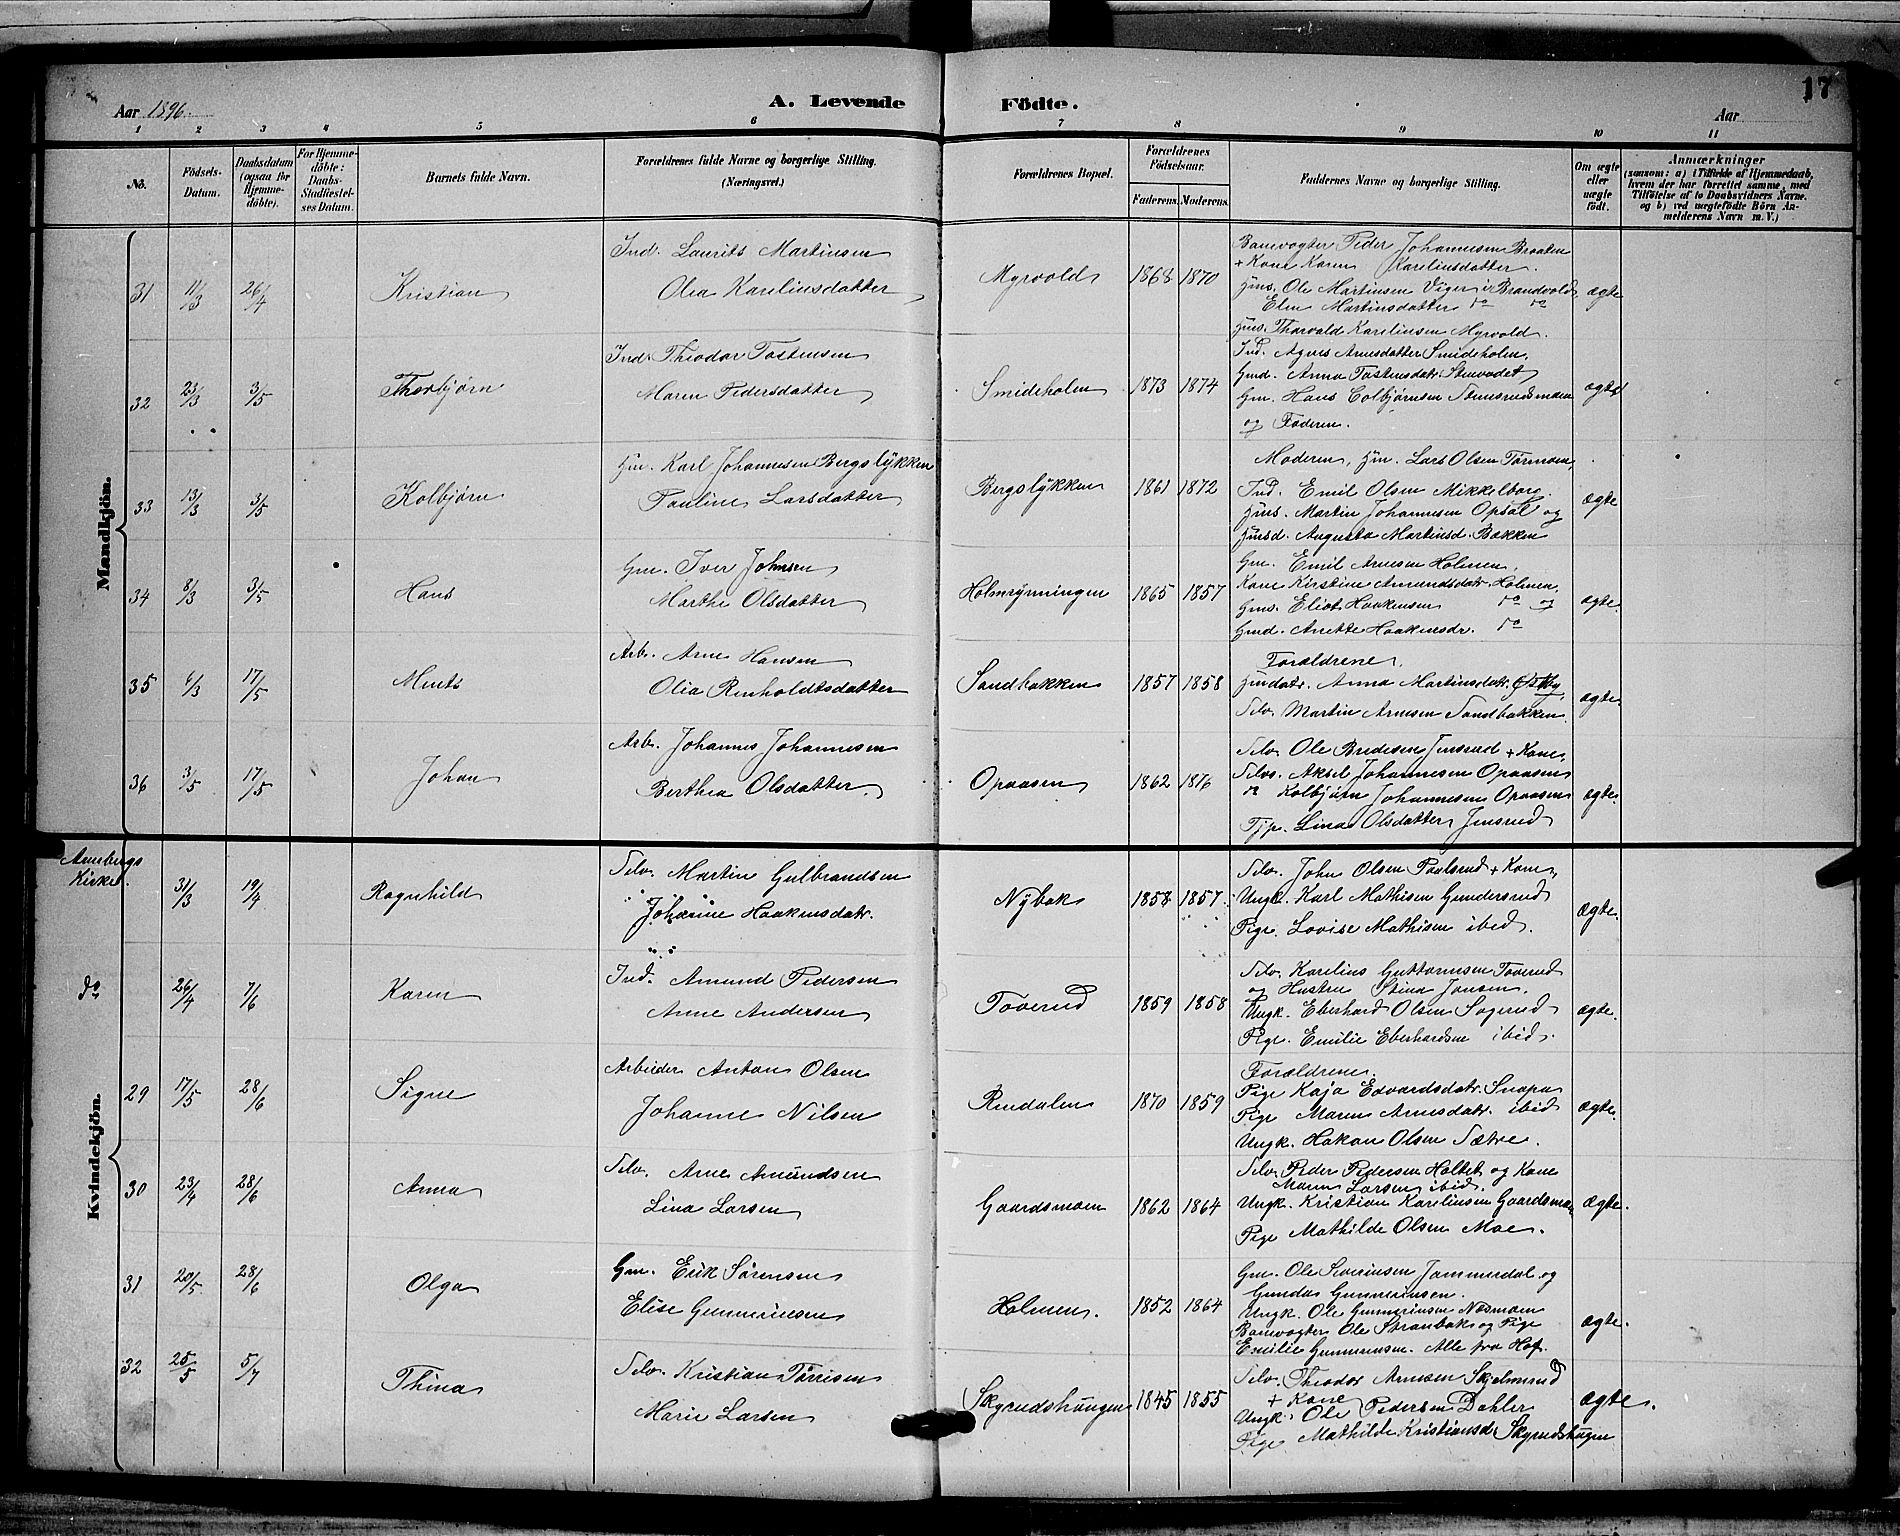 17
Aar 1896. A. Levende Födte. Aar
1 2 3 4 5 6 7 8 9 10 11
No.
Födsels-Datum.
Daabsdatum (ogsaa for Hjemmedöbte).
For Hjemmedöbte: Daabs-Stadfæstelses Datum.
Barnets fulde Navn.
Forældrenes fulde Navne og borgerlige Stilling. (Næringsvei.)
Forældrenes Bopæl.
Forældrenes Födselsaar.
Faderens. Moderens.
Faddernes Navne og borgerlige Stilling.
Om ægte eller uægte födt.
Anmærkninger
(saasom: a) i Tilfælde af Hjemmedaab, hvem der har forrettet samme, med Tilföielse af to Daabsvidners Navne. og b) ved uægtefödte Börn Anmelderens Navn m. V.)
Mandkjön.
31 11/3 26/4 Kristian
Ind. Laurits Martinsen
Olea Kareliusdatter
Myrvold 1868 1870
Banevogter Peder Johannesen Braaten
+ Kone Karen Kareliusdatter.
Gms. Ole Martinsen Viger i Brandvold,
Elen Martinsdatter do do
Gms. Thorvald Kareliusen Myrvold.
ægte
32 23/3 3/5 Thorbjørn
Ind. Theodor Tostensen
Maren Pedersdatter
Smideholen 1873 1874
Ind. Agnes Arnesdatter Smideholen,
Gmd. Anna Tostensdatr.
Gm. Hans Colbjørnsen
og Faderen.
ægte
33 13/3 3/5 Kolbjørn
Gm. Karl Johannesen Bergslykken
Pauline Larsdatter
Bergslykken 1861 1872
Moderen, Gm. Lars Olsen Tørmoen,
Ind. Emil Olsen Mikkelborg.
Gms. Martin Johannesen Opsal og
Gmsd. Augusta Martinsd. Bakken
ægte
34 8/3 3/5 Hans
Gm. Iver Johnsen
Marthe Olsdatter
Holmrynningen 1865 1857
Gm. Emil Arnesen Holmen,
Kone Kirstine Amundsdatr. Holmen,
Gms. Eliot Haakensen do og
Gmd. Anette Haakensdr. do
ægte.
35 6/3 17/5 Mints
Arb. Arne Hansen
Olia Renholdtsdatter
Sandbakken 1857 1858
Forældrene,
Gmdatr. Anna Martinsdatr. Østby,
Selv. Martin Arnesen Sandbakken.
ægte.
36 3/5 17/5 Johan
Arb. Johannes Johannesen
Berthea Olsdatter
Opaasen 1862 1876
Selv. Ole Bredesen Jensrud + Kone,
Selvs. Aksel Johannesen Opaasen
do Kolbjørn Johannesen Opaasen
Tjp. Lina Olsdatter Jensrud
ægte.
Kvindekjön.
Arnebergs Kirke.
31/3 19/4 Ragnhild
Selv. Martin Gulbrandsen
Johanne Haakensdatr.
Nybak 1858 1857.
Selv. John Olsen Paulsrud + Kone,
Ungk. Karl Mathisen Gundersrud
Pige. Lovise Mathisen ibid.
ægte.
do 26/4 7/6 Karen
Ind. Amund Pedersen
Anne Andersen
Toverud 1859 1858
Selv. Karelius Guttormsen Toverud
og Hustru Stina Jonsen,
Ungk. Eberhard Olsen Sagerud
Pige. Emilie Eberhardsen ibid.
ægte.
29 17/5 28/6 Signe
Arbeider Anton Olsen
Johanne Nilsen
Rendalen 1870 1859
Forældrene.
Pige Kaja Edvardsdatr. Snapa
Pige Maren Arnesdatr. ibid
Ungk. Hakon Olsen Sætre.
ægte.
30 23/4 28/6 Anna
Selv. Arne Amundsen
Lina Larsen
Gaardsmoen 1862 1864
Selv. Peder Pedersen Holtet og Kone
Maren Larsen ibid.
Ungk. Kristian Kareliusen Gaardsmoen
Pige Mathilde Olsen Moe.
ægte.
31 20/5 28/6 Olga
Gm. Erik Sørensen
Elise Gunneriusen
Holmen. 1852 1864
Gm. Ole Severinsen Jammerdal og
Gunda Gunneriusen.
Ungk. Ole Gunneriusen Næsmoen
Banevogter Ole Stranbak og Pige
Emilie Gunneriusen. Alle fra Hof.
ægte.
32 25/5 5/7 Thina
Selv. Kristian Tørrisen
Marie Larsen
Skyrudshaugen 1845 1855
Selv. Theodor Arnesen Skjelmerud
+ Kone
Ungk. Ole Pedersen Dahler
Pige Mathilde Kristiansd. Skyrudshaugen
ægte.